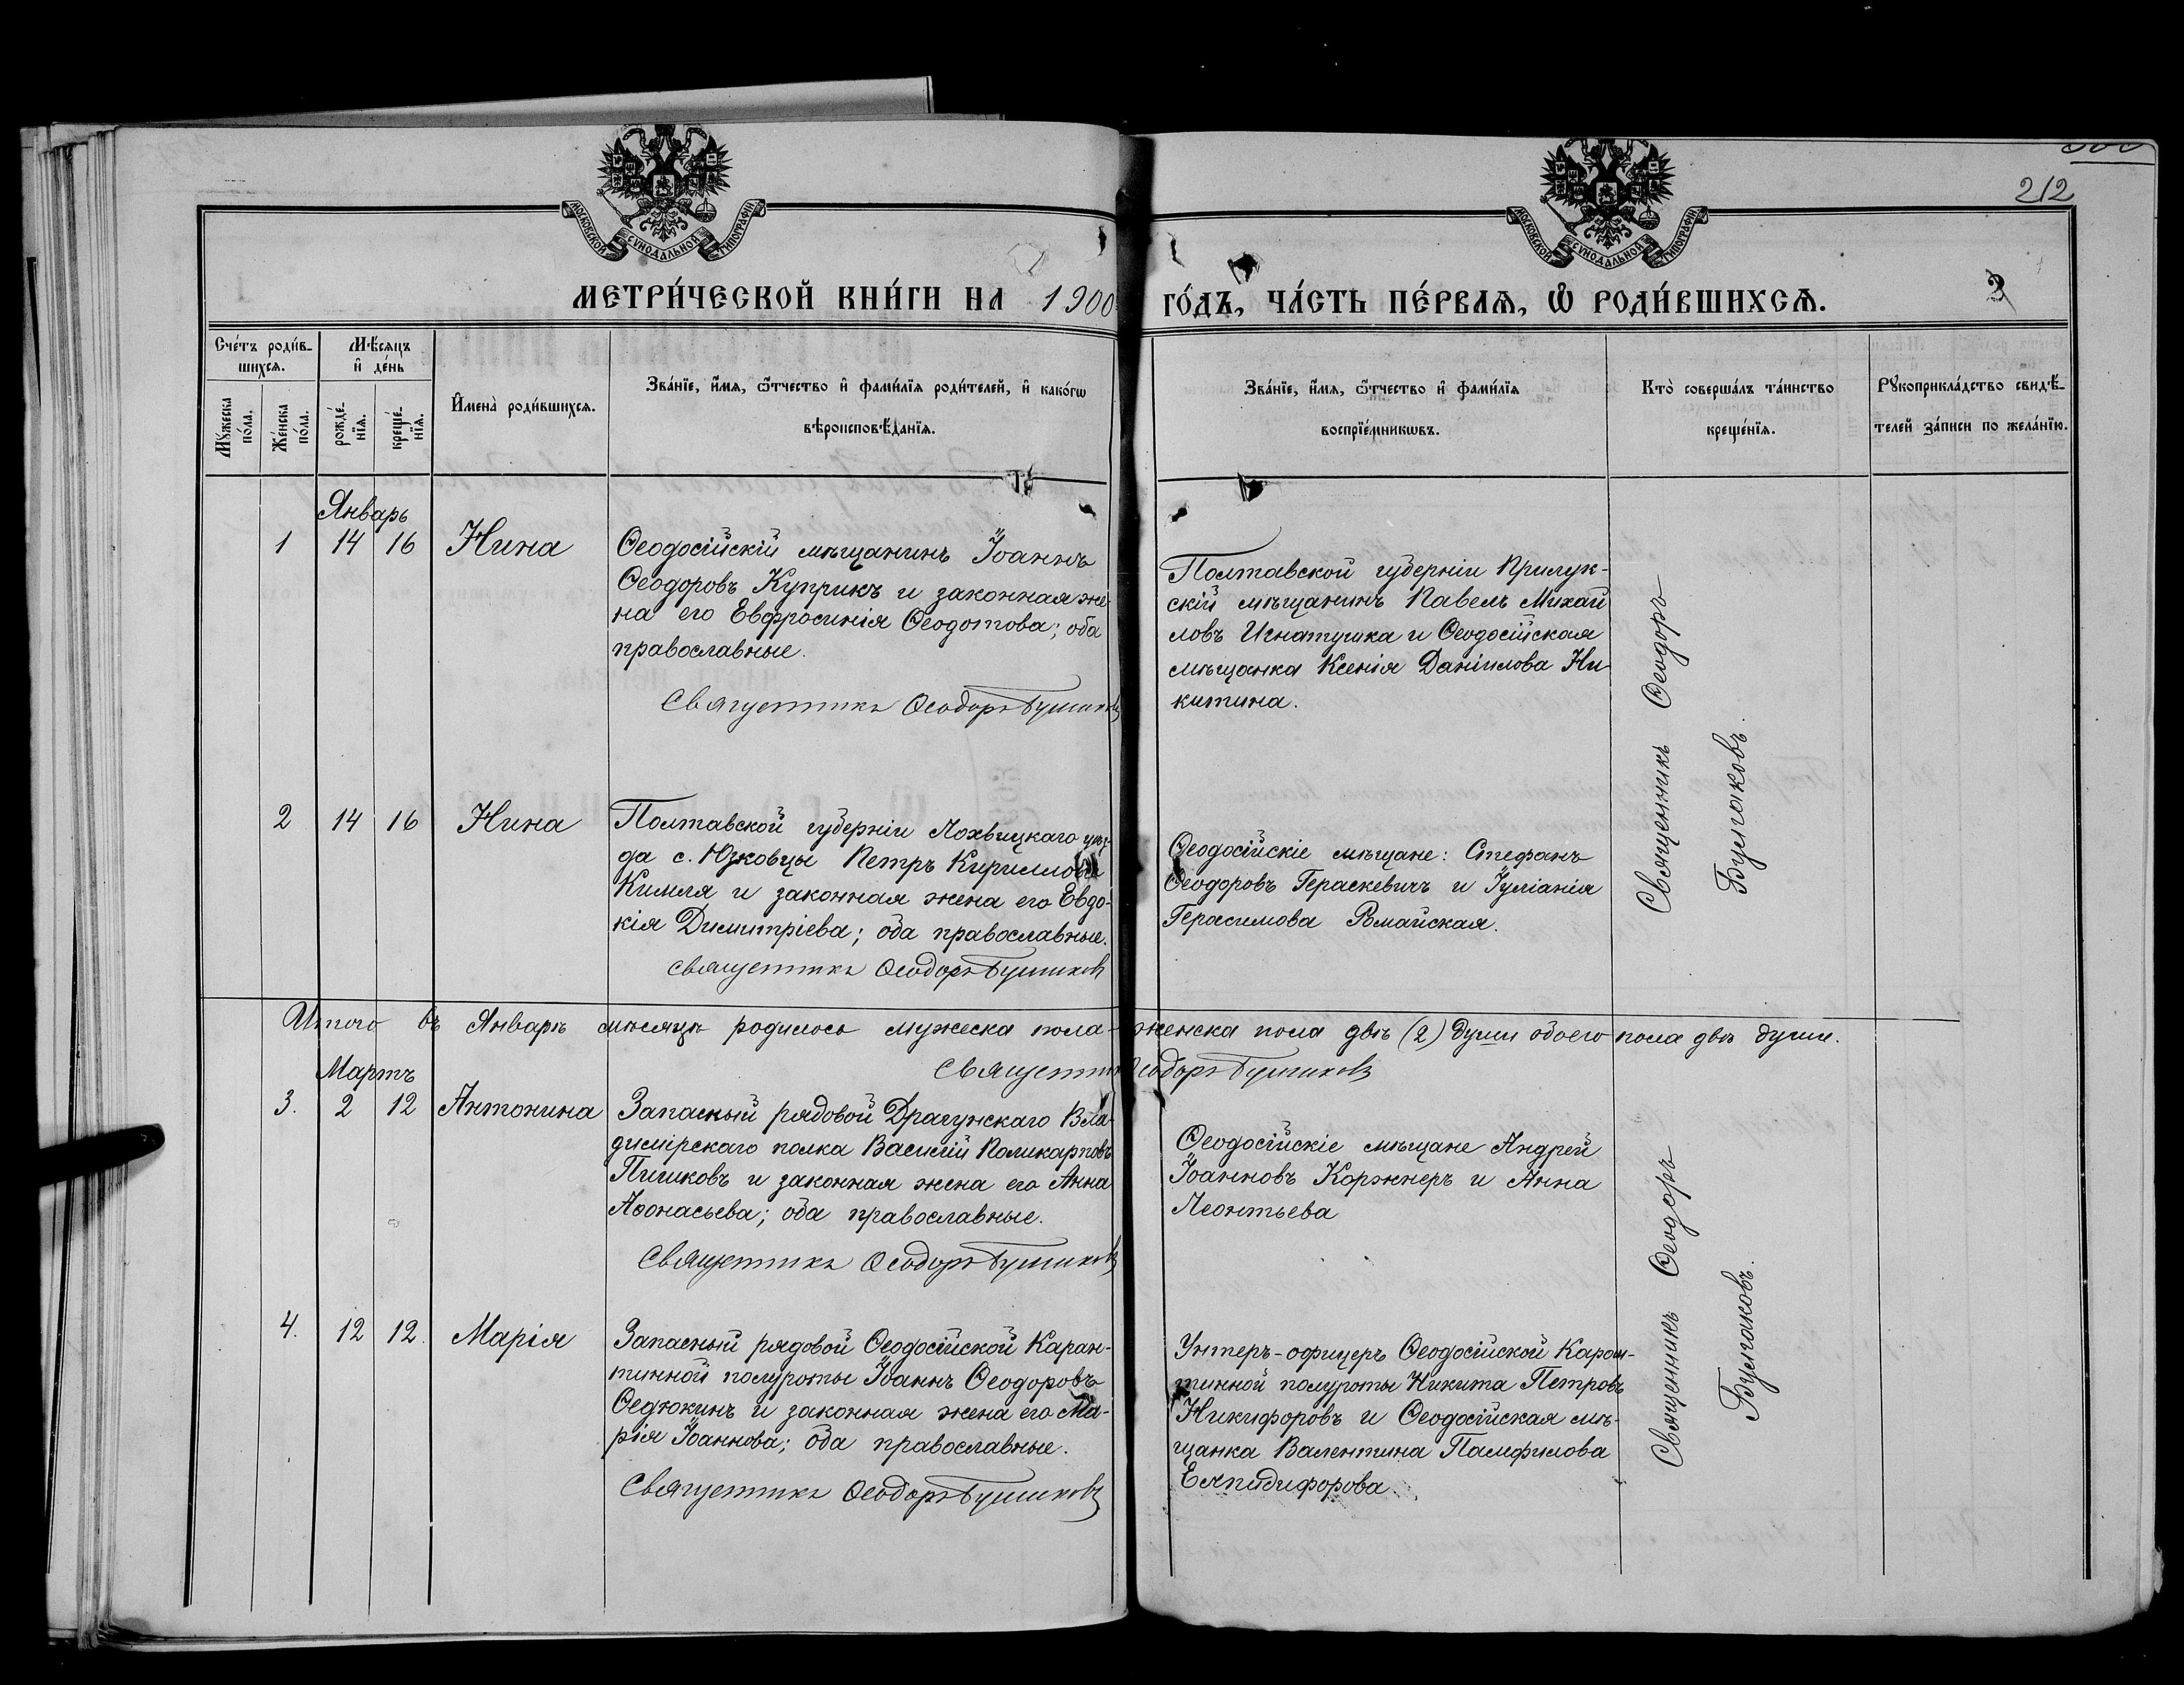 212
МОСКОВСКОЙ СѴНОДАЛЬНОЙ ТИПОГРАФІИ
МОСКОВСКОЙ СѴНОДАЛЬНОЙ ТИПОГРАФІИ
МЕТРИ́ЧЕСКОЙ КНИ́ГИ НА 1900 ГО́ДЪ, ЧА́СТЬ ПЕ́РВАѦ, Ѡ҆ РОДИ́ВШИХСѦ. 2
Сче́тъ роди́в-
шихсѧ.
Мѣ́сѧцъ
и҆ де́нь
Мꙋ́жеска
по́ла.
Же́нска
по́ла.
рожде́-
нїѧ.
креще́-
нїѧ.
И҆мена̀ роди́вшихсѧ.
Зва́нїе, и҆́мѧ, ѻ҆́тчество и҆ фами́лїѧ роди́телей, и҆ како́гѡ
вѣроисповѣ́данїѧ.
Зва́нїе, и҆́мѧ, ѻ҆́тчество и҆ фами́лїѧ
воспрїе́мникѡвъ.
Кто̀ соверша́лъ та́инство
креще́нїѧ.
Рꙋкоприкла́дство свидѣ́-
телей за́писи по жела́нїю.
Январь
1 14 16 Нина
Ѳеодосійскій мѣщанинъ Іоаннъ
Ѳеодоровъ Куприкъ и законная же-
на его Евфросинія Ѳеодотова; оба
православные.
Священникъ Ѳеодоръ Булгаковъ
Полтавской губерніи Прилук-
скій мѣщанинъ Павелъ Михай
ловъ Игнатушка и Ѳеодосійская
мѣщанка Ксенія Даніилова Ни-
китина.
Священникъ Ѳеодоръ
Булгаковъ.
2 14 16 Нина
Полтавской губерніи Лохвицкаго уѣз-
да с. Юзковцы Петръ Кирилловъ
Кимля и законная жена его Евдо-
кія Димитріева; оба православные.
Священникъ Ѳеодоръ Булгаковъ
Ѳеодосійскіе мѣщане: Стефанъ
Ѳеодоровъ Гераскевичъ и Іуліанія
Герасимова Романская.
Итого въ Январѣ мѣсяцѣ родилось мужеска пола - женска пола двѣ (2) души обоего пола двѣ души.
Священникъ Ѳеодоръ Булгаковъ
Мартъ
3. 2 12 Антонина
Запасный рядовой Драгунскаго Вла-
димірскаго полка Василій Поликарповъ
Пишковъ и законная жена его Анна
Аѳонасьева; оба православные.
Священникъ Ѳеодоръ Булгаковъ
Ѳеодосійскіе мѣщане Андрей
Іоанновъ Коржнеръ и Анна
Леонтьева
Священникъ Ѳеодоръ
Булгаковъ.
4. 12 12. Марія
Запасный рядовой Ѳеодосійской Каран-
тинной полуроты Іоаннъ Ѳеодоровъ
Ѳедюкинъ и законная жена его Ма-
рія Іоаннова; оба православные.
Священникъ Ѳеодоръ Булгаковъ
Унтеръ-офицеръ Ѳеодосійской Каран-
тинной полуроты Никита Петровъ
Никифоровъ и Ѳеодосійская мѣ-
щанка Валентина Памфилова
Елпидифорова.